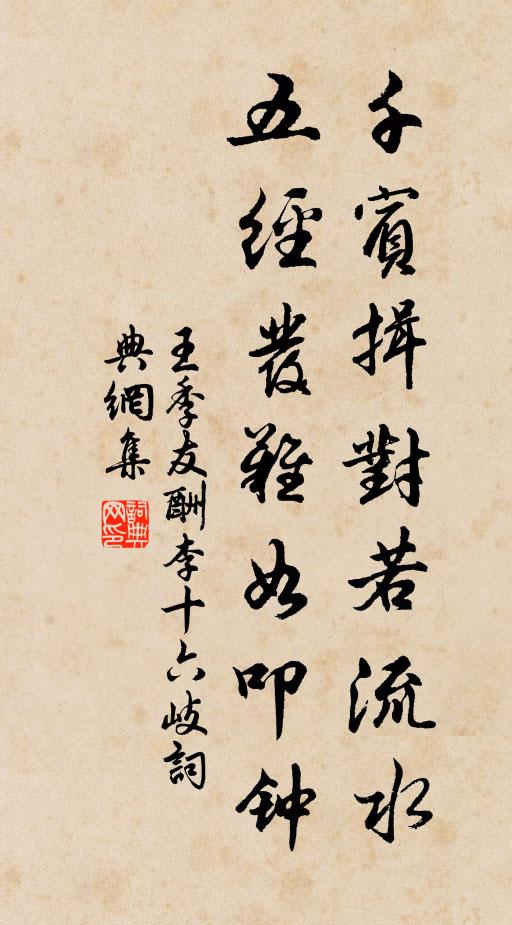 千賓揖對若流水
五經發難如叩钟
王季友酬李十六岐詞
典網集
詞典网印